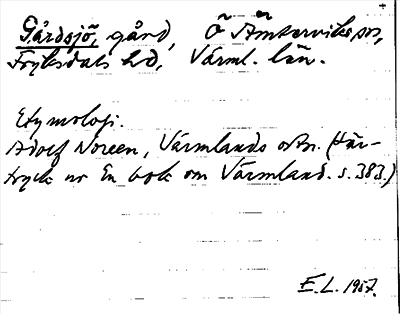 Gårdsjö, gård, Ö Ämtervik sn,
Fryksdals hd, Värml. län.
Etymologi.
Adolf Noreen, Värmlands ortn. (Sär-
tryck ur En bok om Värmland. s. 383.)
E.L. 1957.